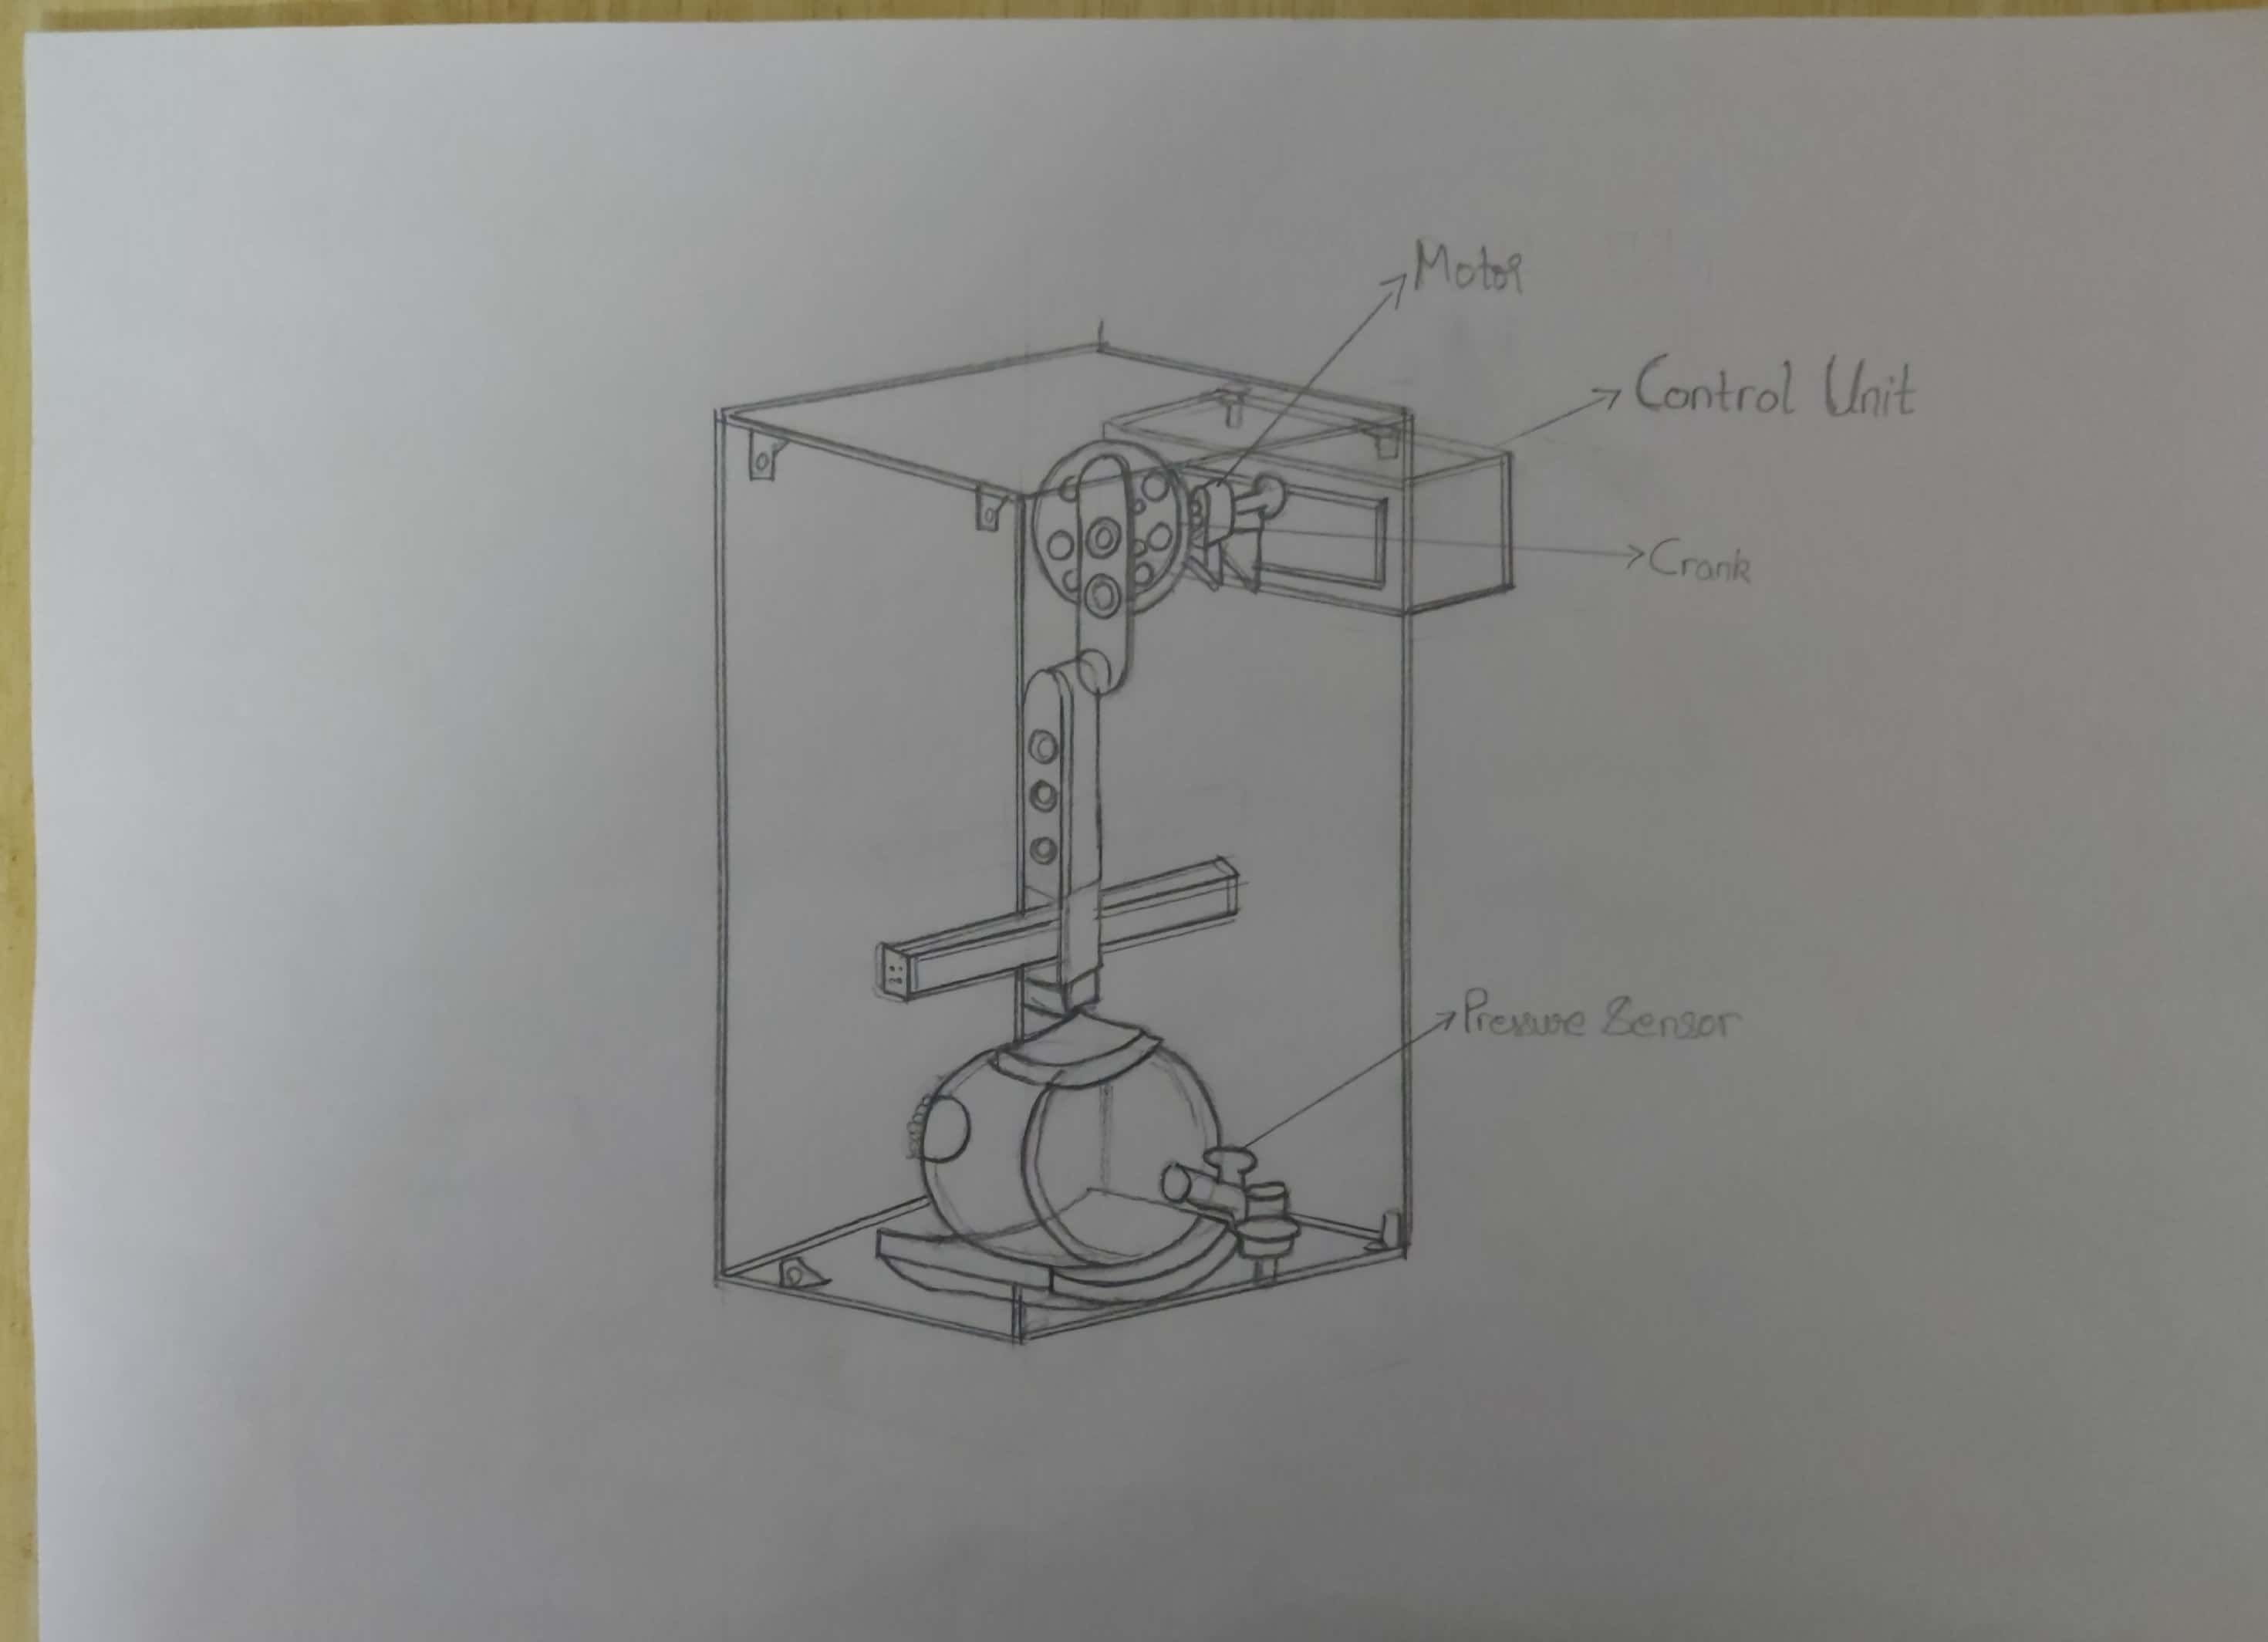 Motor
Control Unit
Crank
Pressure Sensor